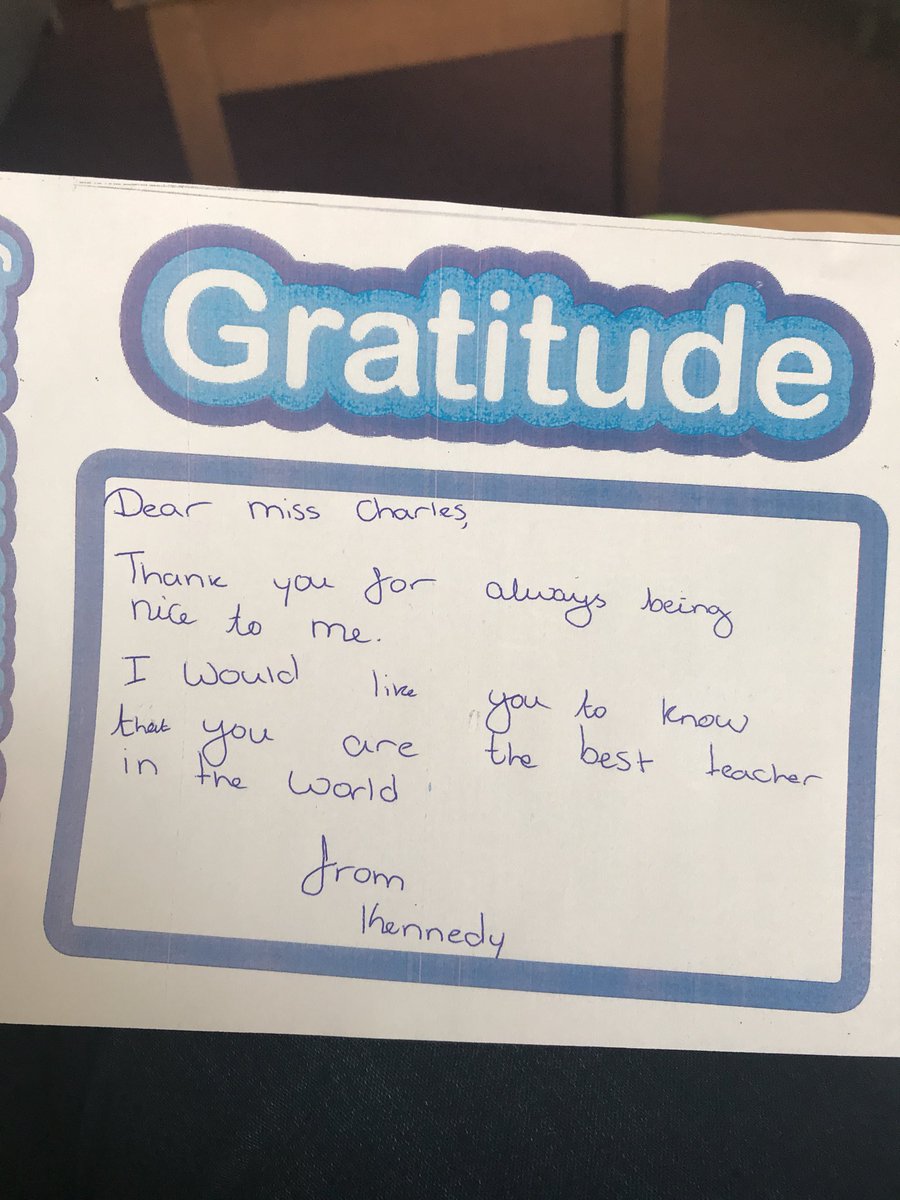 Gratitude
Dear miss Charles,
Thank you for always being
nice to me.
I would like you to know
that you are the best teacher
in the world
from
Khennedy